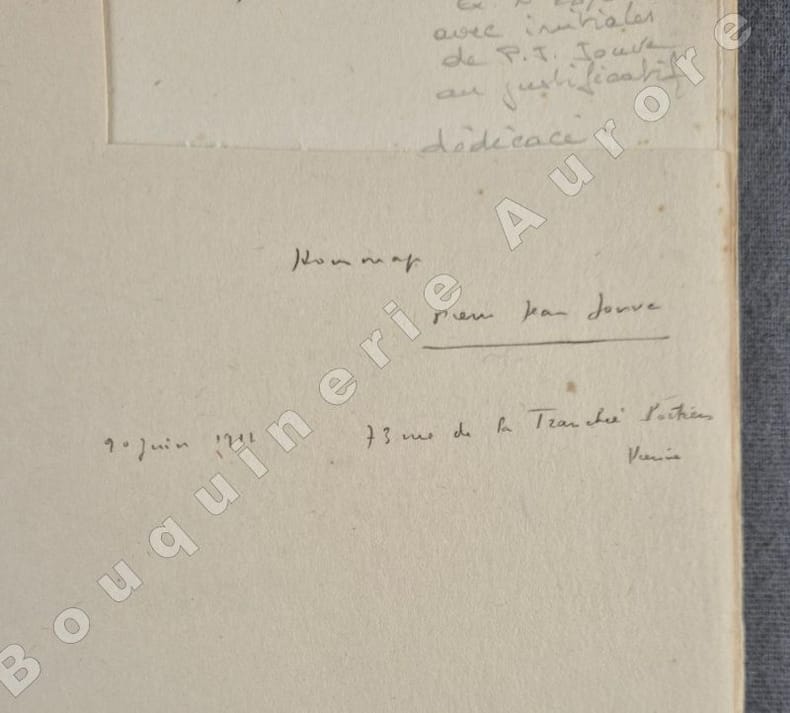 avec initiales
de P. J. Jouve
au justificatif
dédicacé
Hommage
Pierre Jean Jouve
juin 73 rue de la Tranchée Poitiers
Vienne
Bouquinerie Aurore